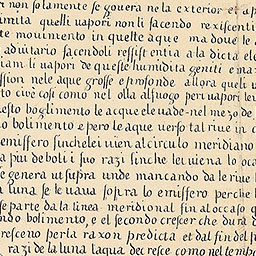 i non solamente se govera nela exterior et a p
imita quelli uapori non li facendo re xiscenti
te movimento in quelle aque ma dove le a
adiutario facendoli ressistentia alla dicta ele
iam li vapori de queste humidita geniti e ma
ssion nele aque grosse e profonde allora queli u
to cive cosi como nel olla alfuogo per uapori ten
esto boglimento le acque eleuade nel mezo de
o bolimento e pero le aque verso tal rive in c
emissero sinchelei vien al circulo meridiano
a piu de boli i suo razi sinche lei viena lo oca
genera ut supra unde mancando da le rive l
a luna se le vava sopra lo emissero perche l
se parte da la linea meridional fin al occaso q
ndo bolimento, e el secondo crescer che dura q
resceno per la raxon predicta et dal fin del su
razi de la luna laqua decresce como nel tempo